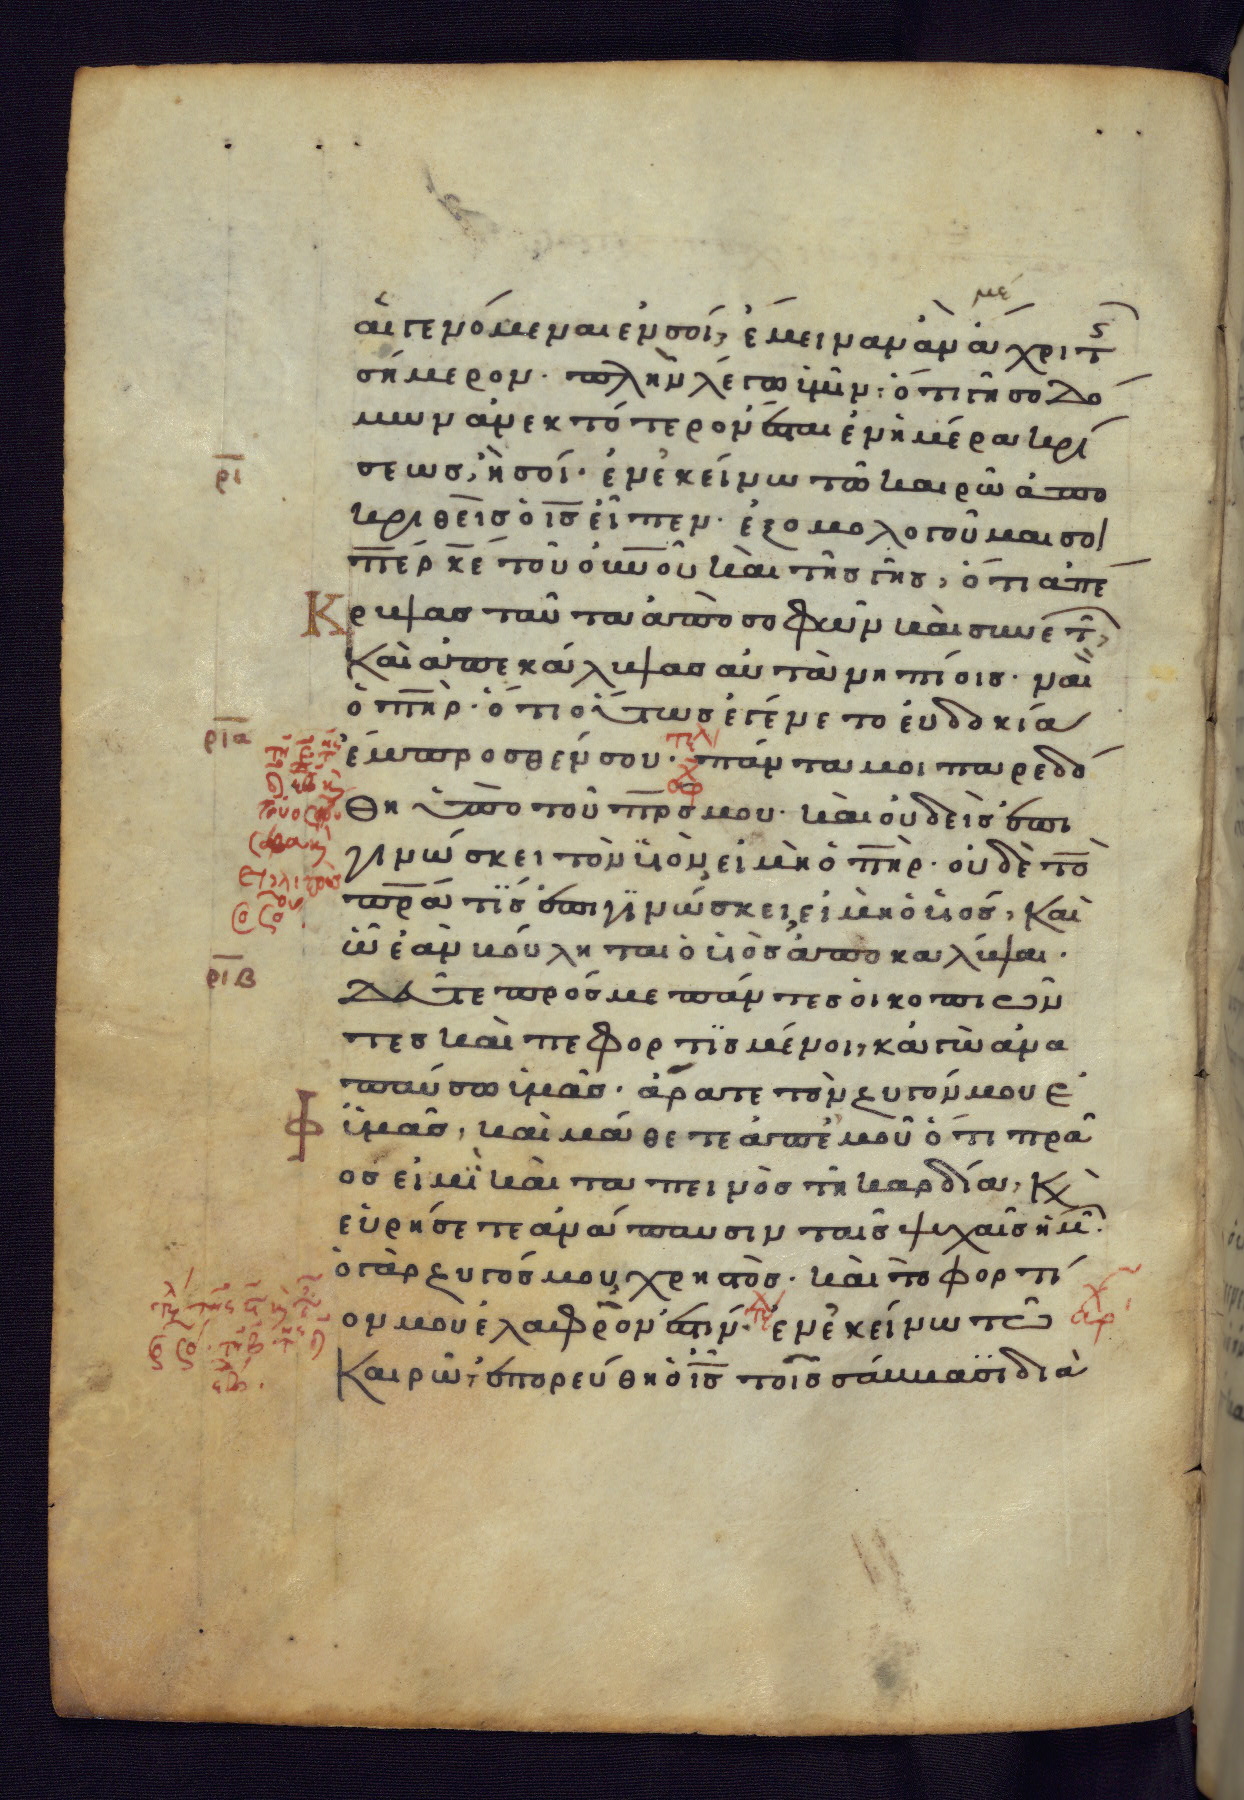 αι γενόμεναι ἐν σοί, ἔμειναν ἂν ἄχρι τ̅ς
σήμερον. πλὴν λέγω ὑμῖν· ὅτι γῆ σοδό
μων ἀνεκτότερον ἔσται ἐν ἡμέρα κρί
ρ̅ι̅
σεως, ἢ σοί. ἐν ἐκείνω τῶ καιρῶ ἀπο
κριθεὶς ὁ ι̅ς̅ εἶπεν. ἐξομολογοῦμαι σοι
π̅ε̅ρ̅ κ̅ε̅ τοῦ ο̅υ̅ν̅ο̅υ̅ καὶ τῆς γῆς, ὅτι ἀπέ
Κρυψας ταῦτα ἀπὸ σοφῶν καὶ συνετῶ̅,
Καὶ ἀπεκάλυψας αὐτὰ νηπίοις. ναὶ
ὁ π̅η̅ρ̅. ὅτι οὕτως ἐγένετο εὐδοκία
ρ̅ι̅α̅
ἔμπροσθέν σου. τελ πάντα μοι παρεδό
ἀρχ
θη ὑπὸ τοῦ π̅ρ̅ς̅ μου. καὶ οὐδεὶς ἐπι
γινώσκει τὸν υἱὸν, εἰ μὴ ὁ π̅η̅ρ̅. οὐδὲ τὸ̅
π̅ρ̅α̅ τίς ἐπιγινώσκει, εἰ μὴ ὁ υἱός, Καὶ
ὧ ἐὰν βούληται ὁ υἱὸς ἀποκαλύψαι.
ρ̅ι̅β̅
Δεῦτε πρός με πάντες οἱ κοπιῶν
τες καὶ πεφορτϊσμένοι, κἀγὼ ἀνα
παύσω ὑμᾶς. ἄρατε τὸν ζυγόν μου ἐ
φ ὑμᾶς, καὶ μάθετε ἀπ' ἐμοῦ ὅτι πρᾶ
ος εἰμὶ καὶ ταπεινὸς τῆ καρδία, Κ̀
εὑρήσετε ἀνάπαυσιν ταῖς ψυχαῖς ἡμῶ̅.
ὁ γὰρ ζυγός μου, χρηστὸς. καὶ τὸ φορτί
ον μου ἐλαφρόν ἐστίν. τελ ἐν ἐκείνω τῶ ἀρχ
Καιρῶ, ἐπορεύθη ὁ ι̅ς̅ τοῖς σάββασϊ διὰ